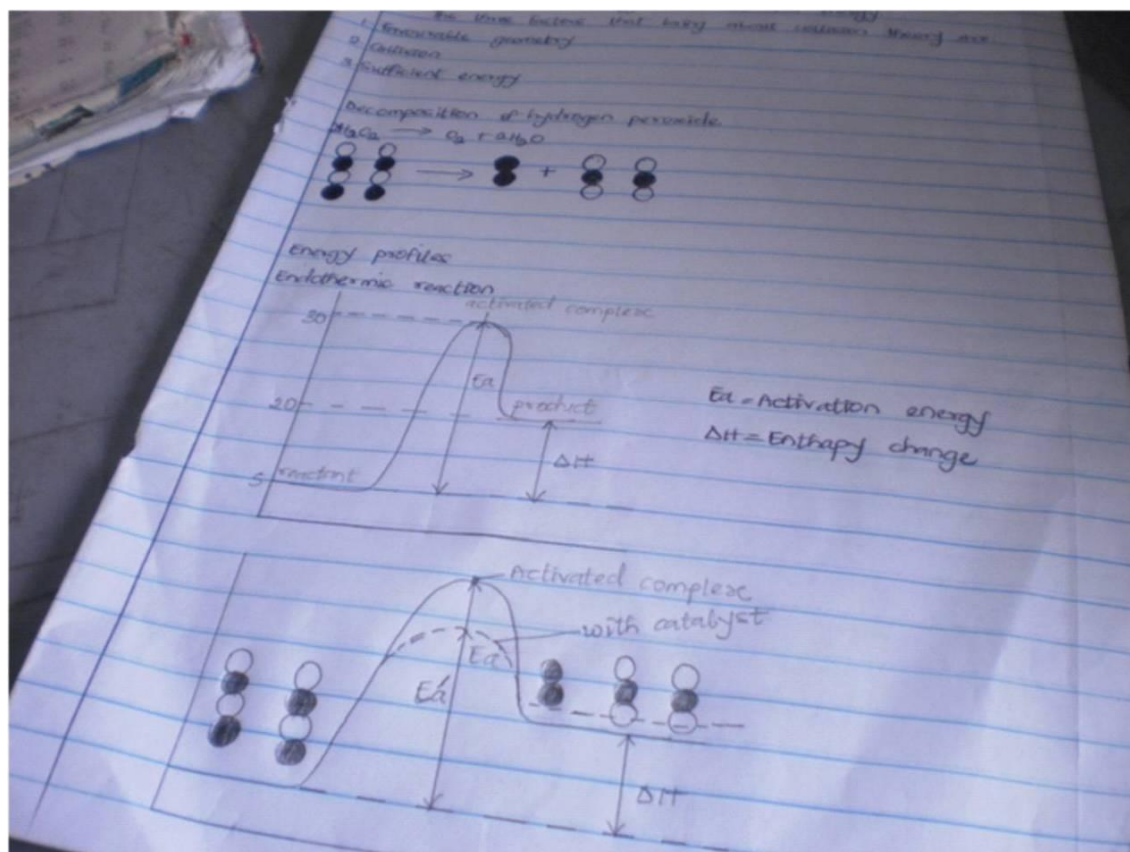 the three factors that bring about collision theory are
1. Favourable geometry
2. Collision
3. Sufficient energy
Decomposition of hydrogen peroxide
2H₂O₂ → O₂ + 2H₂O
→ +
Energy profiles
Endothermic reaction
activated complexe
30
Ea
20 product
Ea = Activation energy
ΔH = Enthapy change
ΔH
5 reactant
Activated complexe
with catalyst
Ea
Eá
ΔH